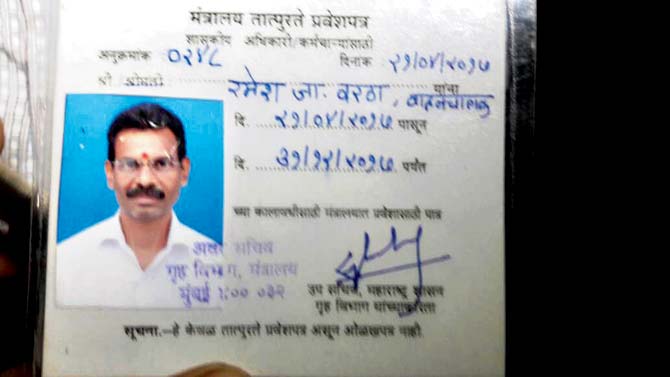 मंत्रालय तात्पुरते प्रवेशपत्र
शासकीय अधिकारी/कर्मचाऱ्यांसाठी
अनुक्रमांक ०२४८ दिनांक २१/०४/२०१७
श्री /श्रीमती रमेश जा. वरठा, वाहनचालक यांना
दि. २१/०४/२०१७ पासून
दि. ३१/१२/२०१७ पर्यंत
च्या कालावधीसाठी मंत्रालयात प्रवेशासाठी पात्र
अवर सचिव
गृह विभाग, मंत्रालय
मुंबई ४०० ०३२
उप सचिव, महाराष्ट्र शासन
गृह विभाग यांच्याकरिता
सूचना.—हे केवळ तात्पुरते प्रवेशपत्र असून ओळखपत्र नाही.